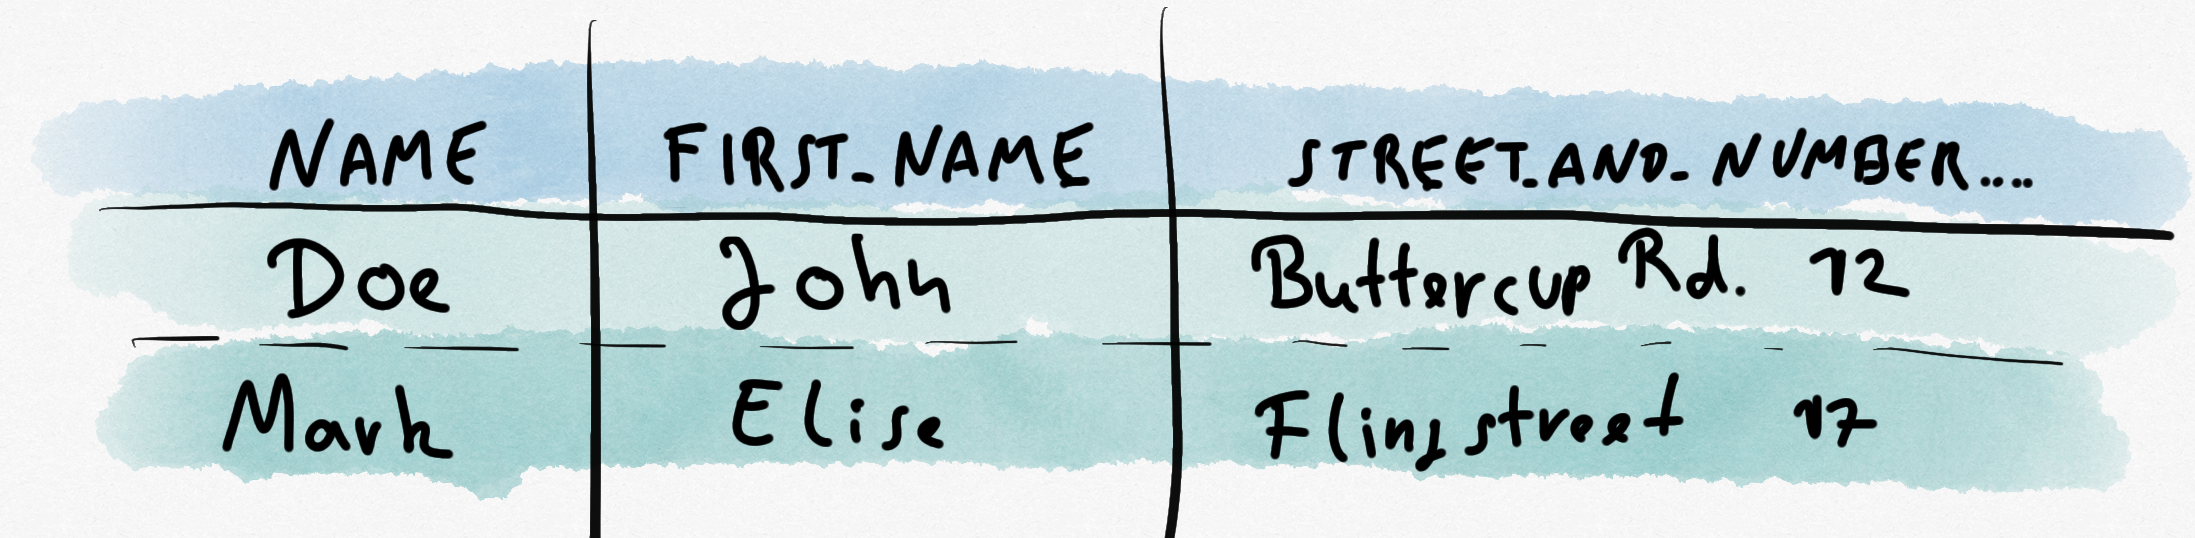 NAME FIRST_NAME STREET_AND_NUMBER....
Doe John Buttercup Rd. 12
Mark Elise Flingstreet 17